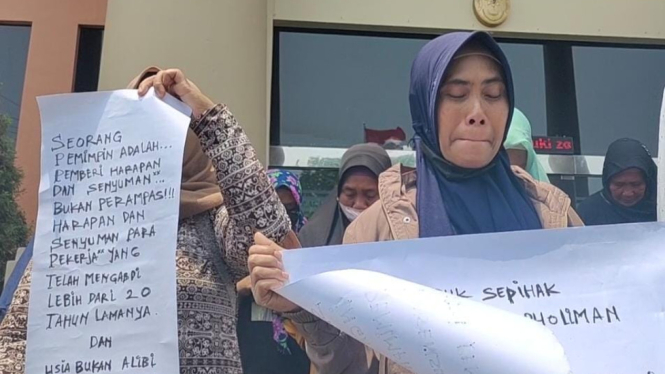 SEORANG
PEMIMPIN ADALAH...
PEMBERI HARAPAN
DAN SENYUMAN"...
BUKAN PERAMPAS!!!
HARAPAN DAN
SENYUMAN PARA
PEKERJA" YANG
TELAH MENGABDI
LEBIH DARI 20
TAHUN LAMANYA.
DAN
USIA BUKAN ALIBI
SEPIHAK